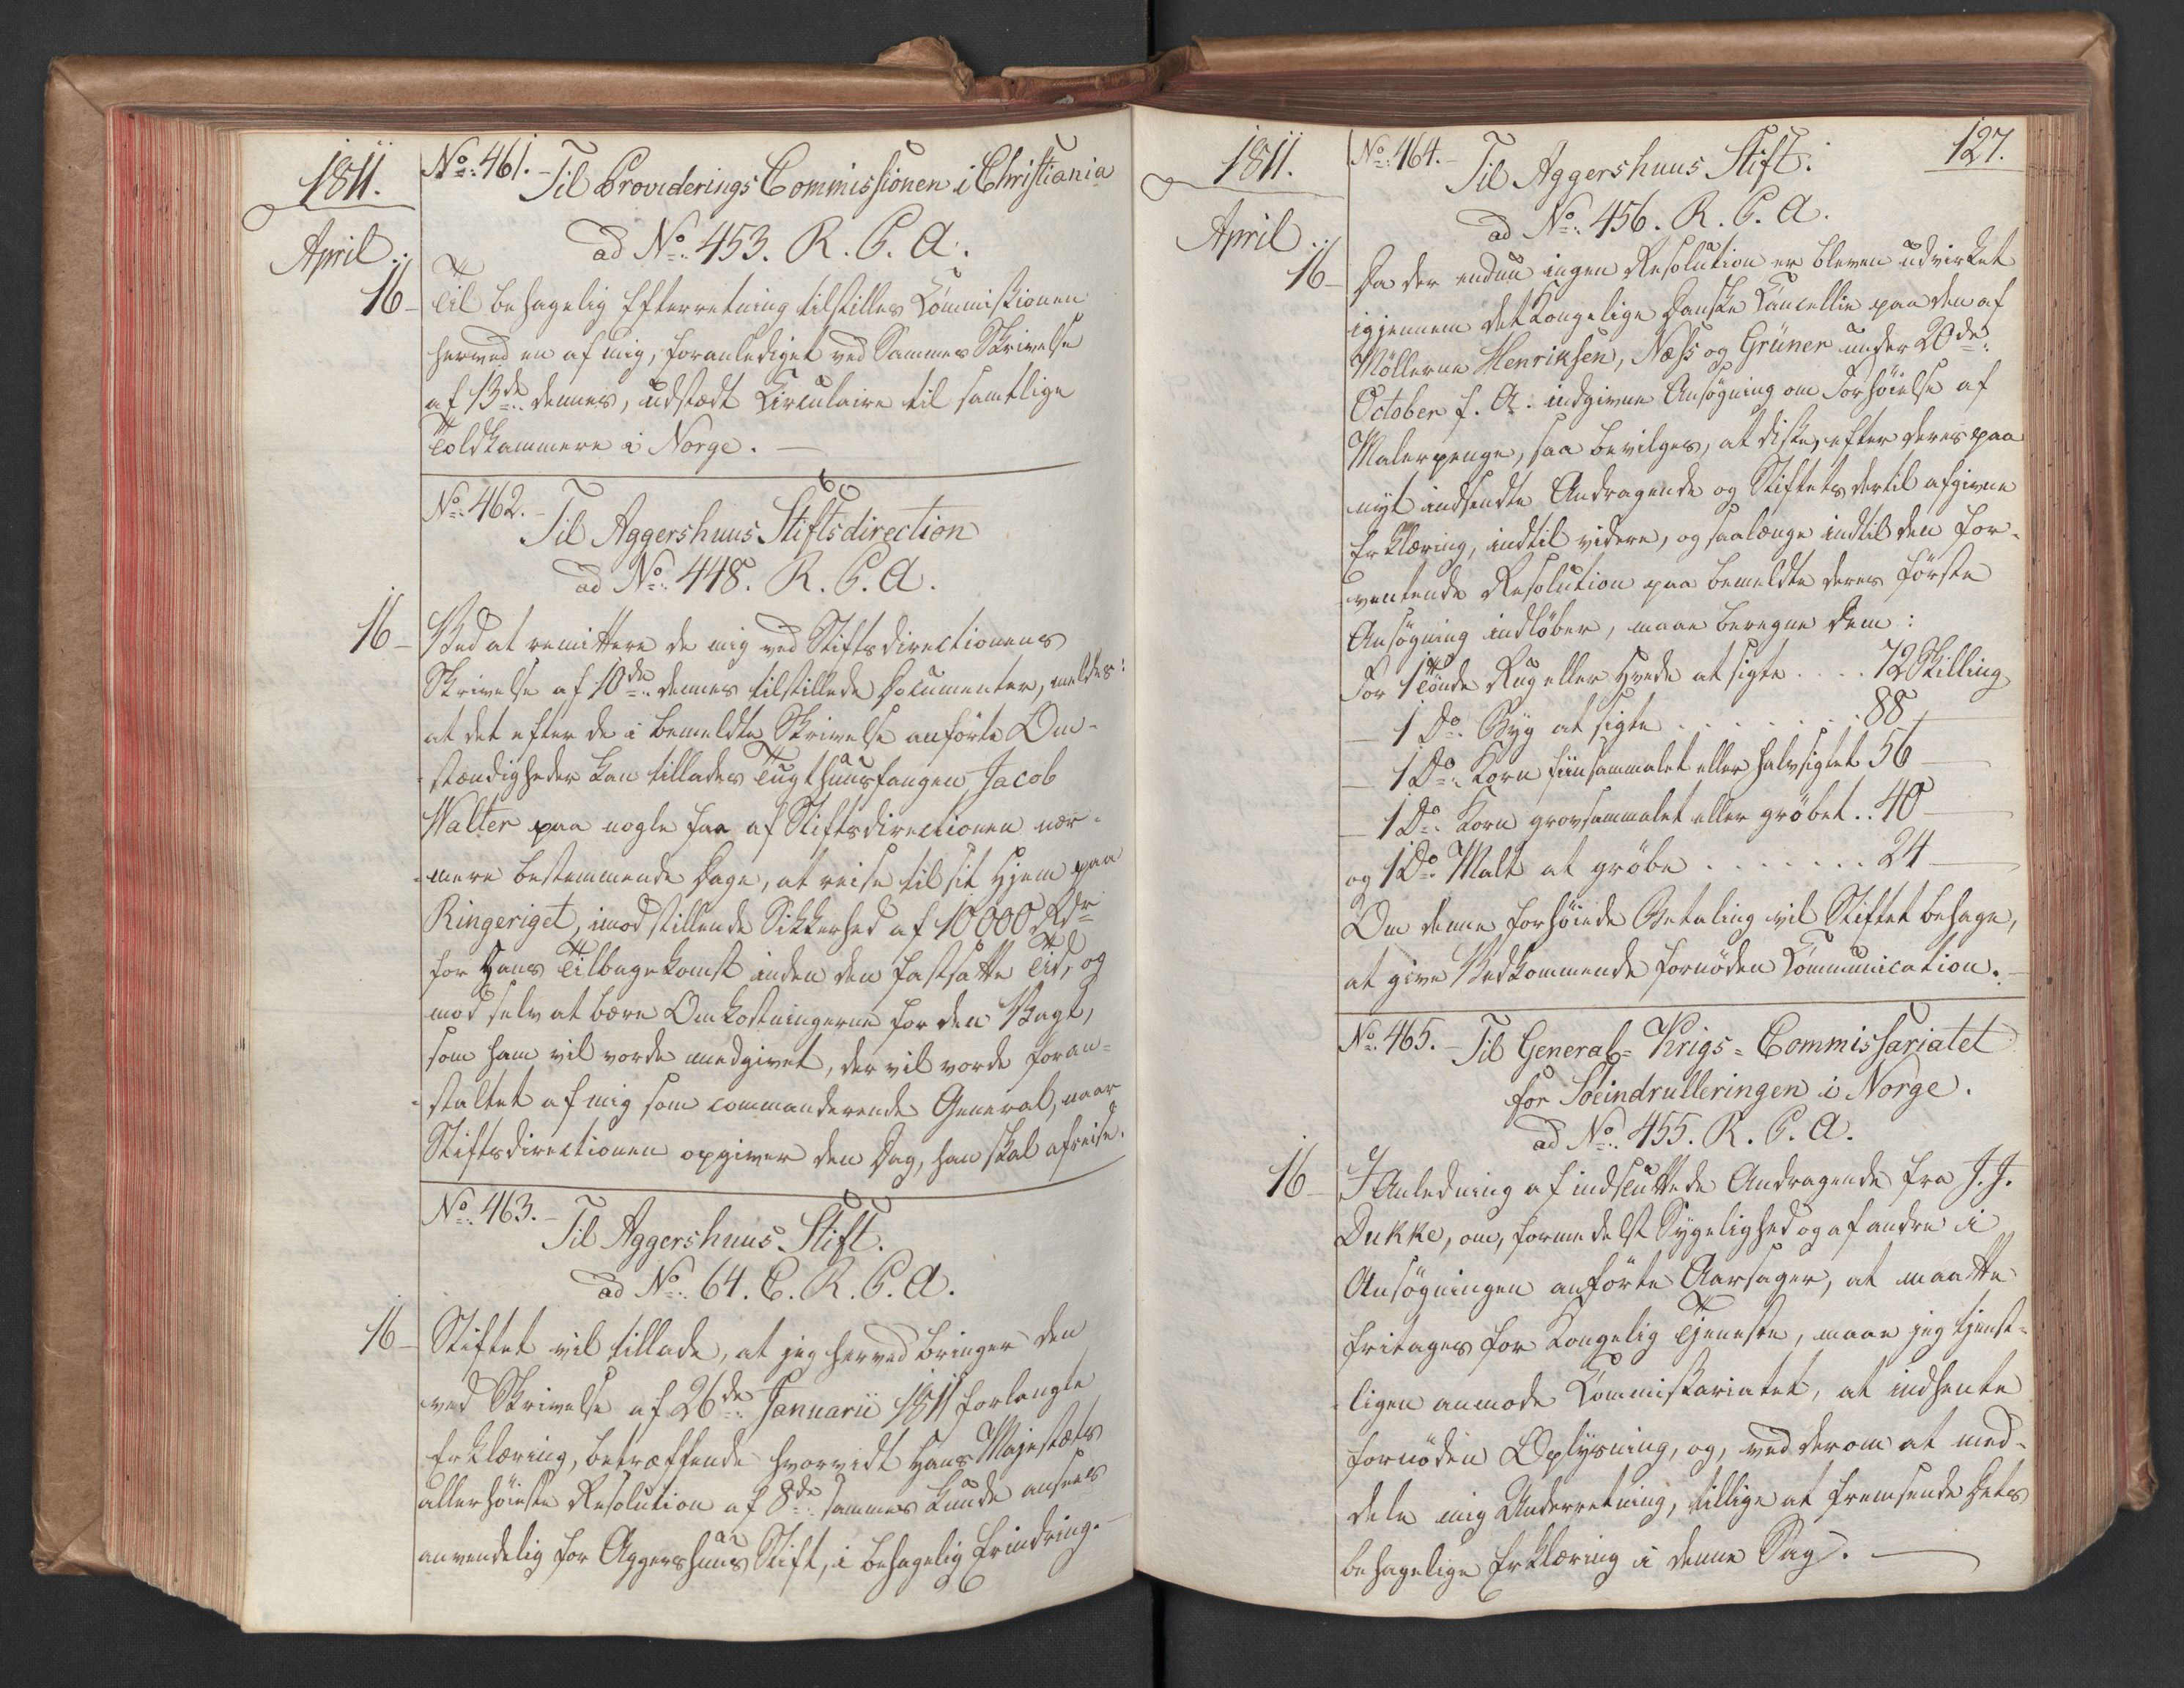 1811.
April.
No. 461. Til Providerings Commissionen i Christiania
ad No. 453. R. P. A.
16 Til behagelig Efterretning tilstilles Commissionen
herved en af mig, foranlediget ved Sammes Skrivelse
af 13de dennes, udstædt Circulaire til samtlige
Toldkammere i Norge.
No. 462.
Til Aggershuus Stiftsdirection
ad No. 448. R. P. A.
16 Ved at remittere de mig ved Stiftsdirectionens
Skrivelse af 10de dennes tilstillede Documenter, meldes:
at det efter de i bemeldte Skrivelse anförte Om-
stændigheder kan tillades Tugthuusfangen Jacob
Walter paa nogle faa af Stiftsdirectionen nær-
mere bestemmende Dage, at reise til sit Hjem paa
Ringeriget, imod stillende Sikkerhed af 10000 Rdr
for Hans Tilbagekomst inden den fastsatte Tid, og
mod selv at bære Omkostningerne for den Vagt,
som ham vil vorde medgivet, der vil vorde foran-
staltet af mig som commanderende General, naar
Stiftsdirectionen opgiver den Dag, han skal afreise.
No. 463.
Til Aggershuus Stift.
ad No. 64. C. R. P. A.
16 Stiftet vil tillade, at jeg herved bringer den
ved Skrivelse af 26de Januarii 1811 forlangte
Erklæring, betræffende hvorvidt Hans Majestæts
allerhöieste Resolution af 8de sammes kunde ansees
anvendelig for Aggershuus Stift, i behagelig Erindring.
1811.
April.
127.
No. 464.
Til Aggershuus Stift.
ad No. 456. R. P. A.
16 Da der endnu ingen Resolution er bleven udvirket
igjennem det Kongelige Danske Cancellie paa den af
Möllerne Henriksen, Næss og Grüner under 20de
October f. A. indgivne Ansögning om Forhöielse af
Malerpenge, saa bevilges, at disse, efter deres paa
nyt indsendte Andragende og Stiftets dertil afgivne
Erklæring, indtil videre, og saalænge indtil den for-
ventende Resolution paa bemeldte deres förste
Ansögning indlöber, maae beregne dem:
For 1 Tönde Rug eller Hvede at sigte .... 72 Skilling
— 1 Do. Byg at sigte ....... 88 —
— 1 Do. Korn fiinsammalet eller halvsigtet 56 —
— 1 Do. Korn grovsammalet eller gröbet .. 40 —
og 1 Do. Malt at gröbe ....... 24 —
Om denne forhöiede Betaling vil Stiftet behage,
at give Vedkommende fornöden Communication.
No. 465. Til General-Krigs-Commissariatet
for Söeindrulleringen i Norge.
ad No. 455. R. P. A.
16 I Anledning af indsluttede Andragende fra J. J.
Dukke, om, formedelst Sygelighed og af andre i
Ansögningen anförte Aarsager, at maatte
fritages for Kongelig Tjeneste, maae jeg tjenst-
ligen anmode Commissariatet, at indhente
fornöden Oplysning, og, ved derom at med-
dele mig Underretning, tillige at fremsende Dets
behagelige Erklæring i denne Sag.